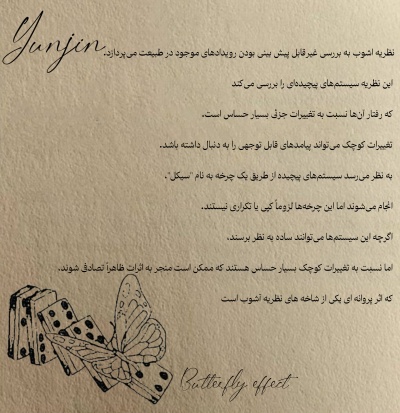 Yunjin
نظریه اشوب به بررسی غیرقابل پیش بینی بودن رویدادهای موجود در طبیعت می‌پردازد.
این نظریه سیستم‌های پیچیده‌ای را بررسی می‌کند
که رفتار آن‌ها نسبت به تغییرات جزئی بسیار حساس است.
تغییرات کوچک می‌تواند پیامدهای قابل توجهی را به دنبال داشته باشد.
به نظر می‌رسد سیستم‌های پیچیده از طریق یک چرخه به نام "سیکل".
انجام می‌شوند اما این چرخه‌ها لزوماً کپی یا تکراری نیستند.
اگرچه این سیستم‌ها می‌توانند ساده به نظر برسند.
اما نسبت به تغییرات کوچک بسیار حساس هستند که ممکن است منجر به اثرات ظاهراً تصادفی شوند.
که اثر پروانه ای یکی از شاخه های نظریه آشوب است
Butterfly effect